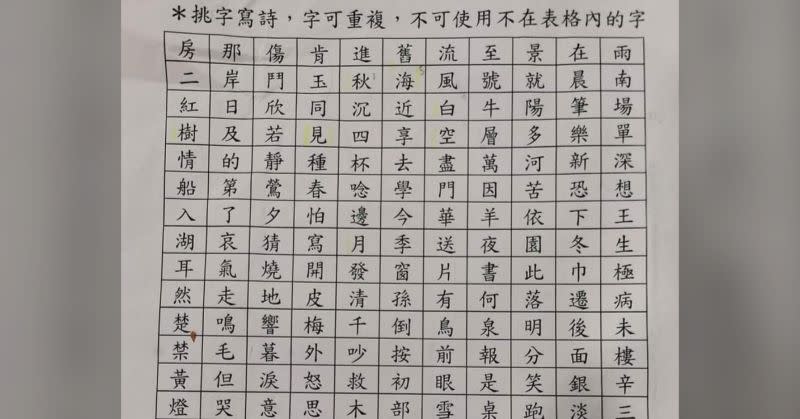 ＊挑字寫詩，字可重複，不可使用不在表格內的字
房那傷肯進舊流至景在雨
二岸鬥玉秋海風號就晨南
紅日欣同沉近白牛陽筆場
樹及若見四享空層多樂單
情的靜種杯去盡萬河新深
船第鶯春唸學門因苦恐想
入了夕怕邊今華羊依下王
湖哀猜寫月季送夜園冬生
耳氣燒開發窗片書此巾極
然走地皮清孫有何落遷病
楚鳴響梅千倒鳥泉明後未
禁毛暮外吵按前報分面樓
黃但淚怒救初眼是笑銀辛
燈哭意思木部雪桌跑淡三